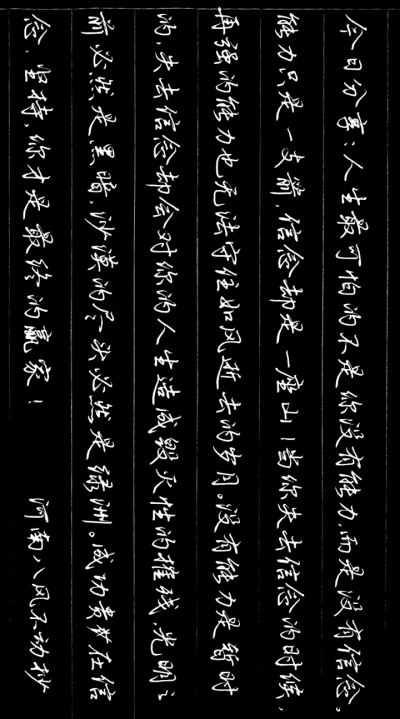 今日分享：人生最可怕的不是你没有能力，而是没有信念。
能力只是一支箭，信念却是一座山！当你失去信念的时候，
再强的能力也无法守住如风逝去的岁月。没有能力是暂时
的，失去信念却会对你的人生造成毁灭性的摧残，光明之
前必然是黑暗，沙漠的尽头必然是绿洲。成功贵在信
念，坚持，你才是最终的赢家！
河南八风不动抄